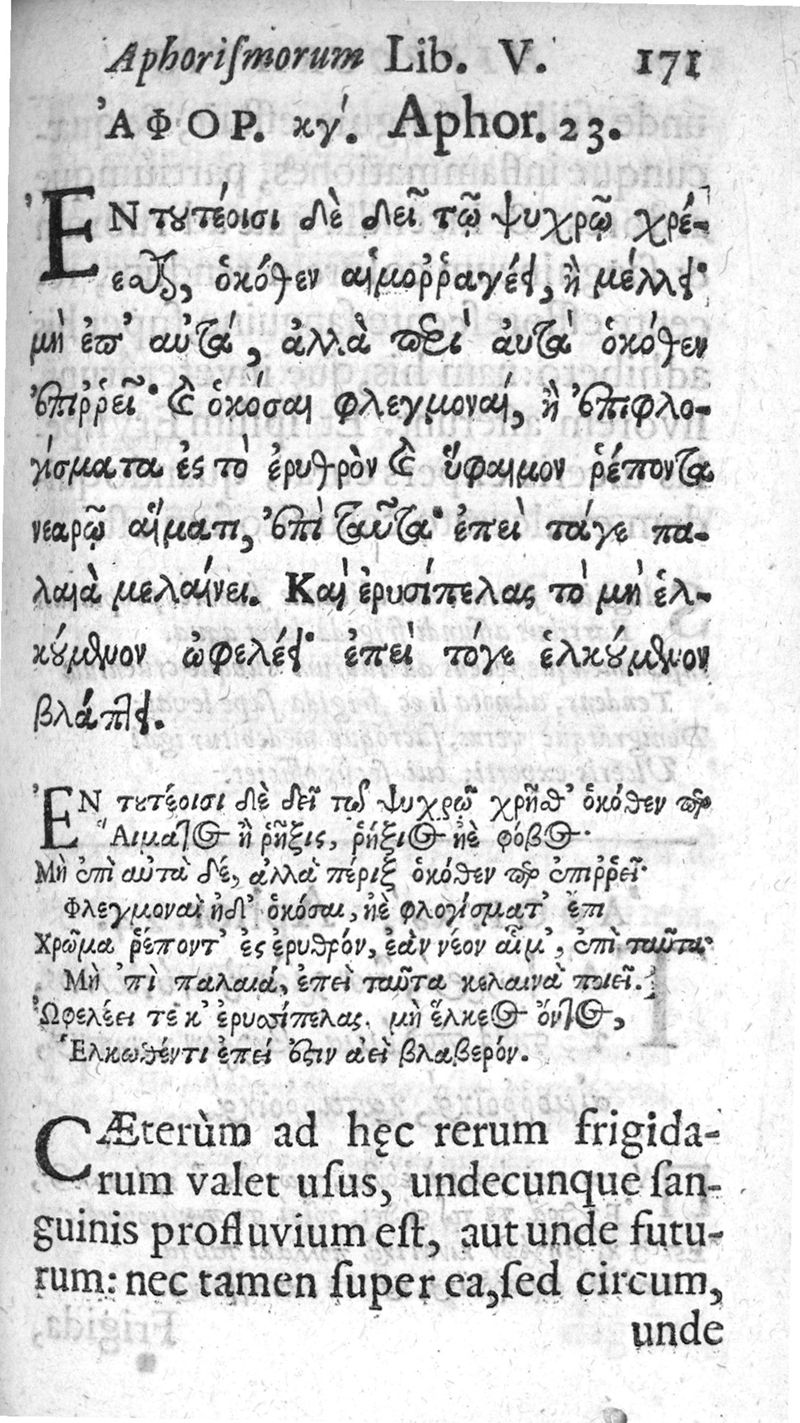 Aphoriſmorum Lib. V. 171
ἈΦΟΡ. κγ΄. Aphor. 23.
ἘΝ τουτέοισι δὲ δεῖ τῷ ψυχρῷ χρέ-
εσθαι, ὁκόθεν αἱμοῤῥαγέει, ἢ μέλλει·
μὴ ἐπ' αὐτὰ, ἀλλὰ περὶ αὐτὰ ὁκόθεν
ἐπιῤῥεῖ· καὶ ὁκόσαι φλεγμοναὶ, ἢ ἐπιφλο-
γίσματα ἐς τὸ ἐρυθρὸν καὶ ὕφαιμον ῥέποντα
νεαρῷ αἵματι, ἐπὶ ταῦτα· ἐπεὶ τάγε πα-
λαιὰ μελαίνει. Καὶ ἐρυσίπελας τὸ μὴ ἑλ-
κούμενον ὠφελέει· ἐπεὶ τόγε ἑλκούμενον
βλάπτει.
ἘΝ τουτέοισι δὲ δεῖ τῷ ψυχρῷ χρῆσθ' ὁκόθεν περ
Αἵματος ἢ ῥῆξις, ῥήξιος ἠὲ φόβος·
Μὴ ἐπὶ αὐτὰ δέ, ἀλλὰ πέριξ ὁκόθεν περ ἐπιῤῥεῖ·
Φλεγμοναὶ ἠδ' ὁκόσαι, ἠὲ φλογίσματ' ἔπι
Χρῶμα ῥέποντ' ἐς ἐρυθρόν, ἐὰν νέον αἷμ', ἐπὶ ταῦτα·
Μὴ 'πὶ παλαιά, ἐπεὶ ταῦτα κελαινὰ ποιεῖ.
Ὠφελέει τε κ' ἐρυσίπελας. μὴ ἕλκεος ὄντος,
Ἑλκωθέντι ἐπεί ἐστιν ἀεὶ βλαβερόν.
CÆterùm ad hęc rerum frigida-
rum valet uſus, undecunque ſan-
guinis profluvium eſt, aut unde futu-
rum: nec tamen ſuper ea, ſed circum,
unde